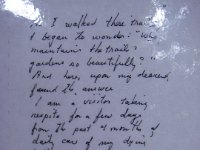 As I walked these trails
I began to wonder: "Who
maintains the trails &
gardens so beautifully?"
And here, upon my dearest
found the answer
I am a visitor taking
respite for a few days
from the past 9 months of
daily care of my dying